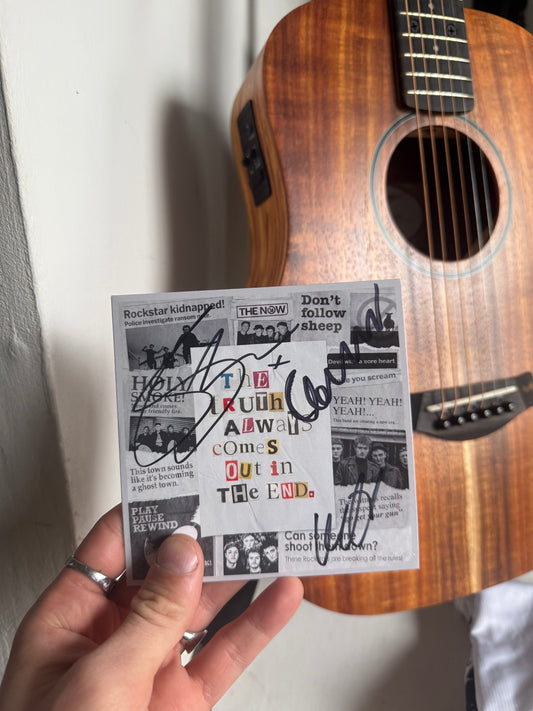 Rockstar kidnapped!
Police investigate ransom
THE NOW
Don't
follow
sheep
HOLY
SMOKE!
with a sore heart
you scream.
YEAH! YEAH!
YEAH!...
THE
TRUTH
ALWAYS
COMES
OUT in
THE END.
This town sounds
like it's becoming
a ghost town.
recalls
PLAY
PAUSE
REWIND
Can
shoot
These Rockstars are breaking all the rules!